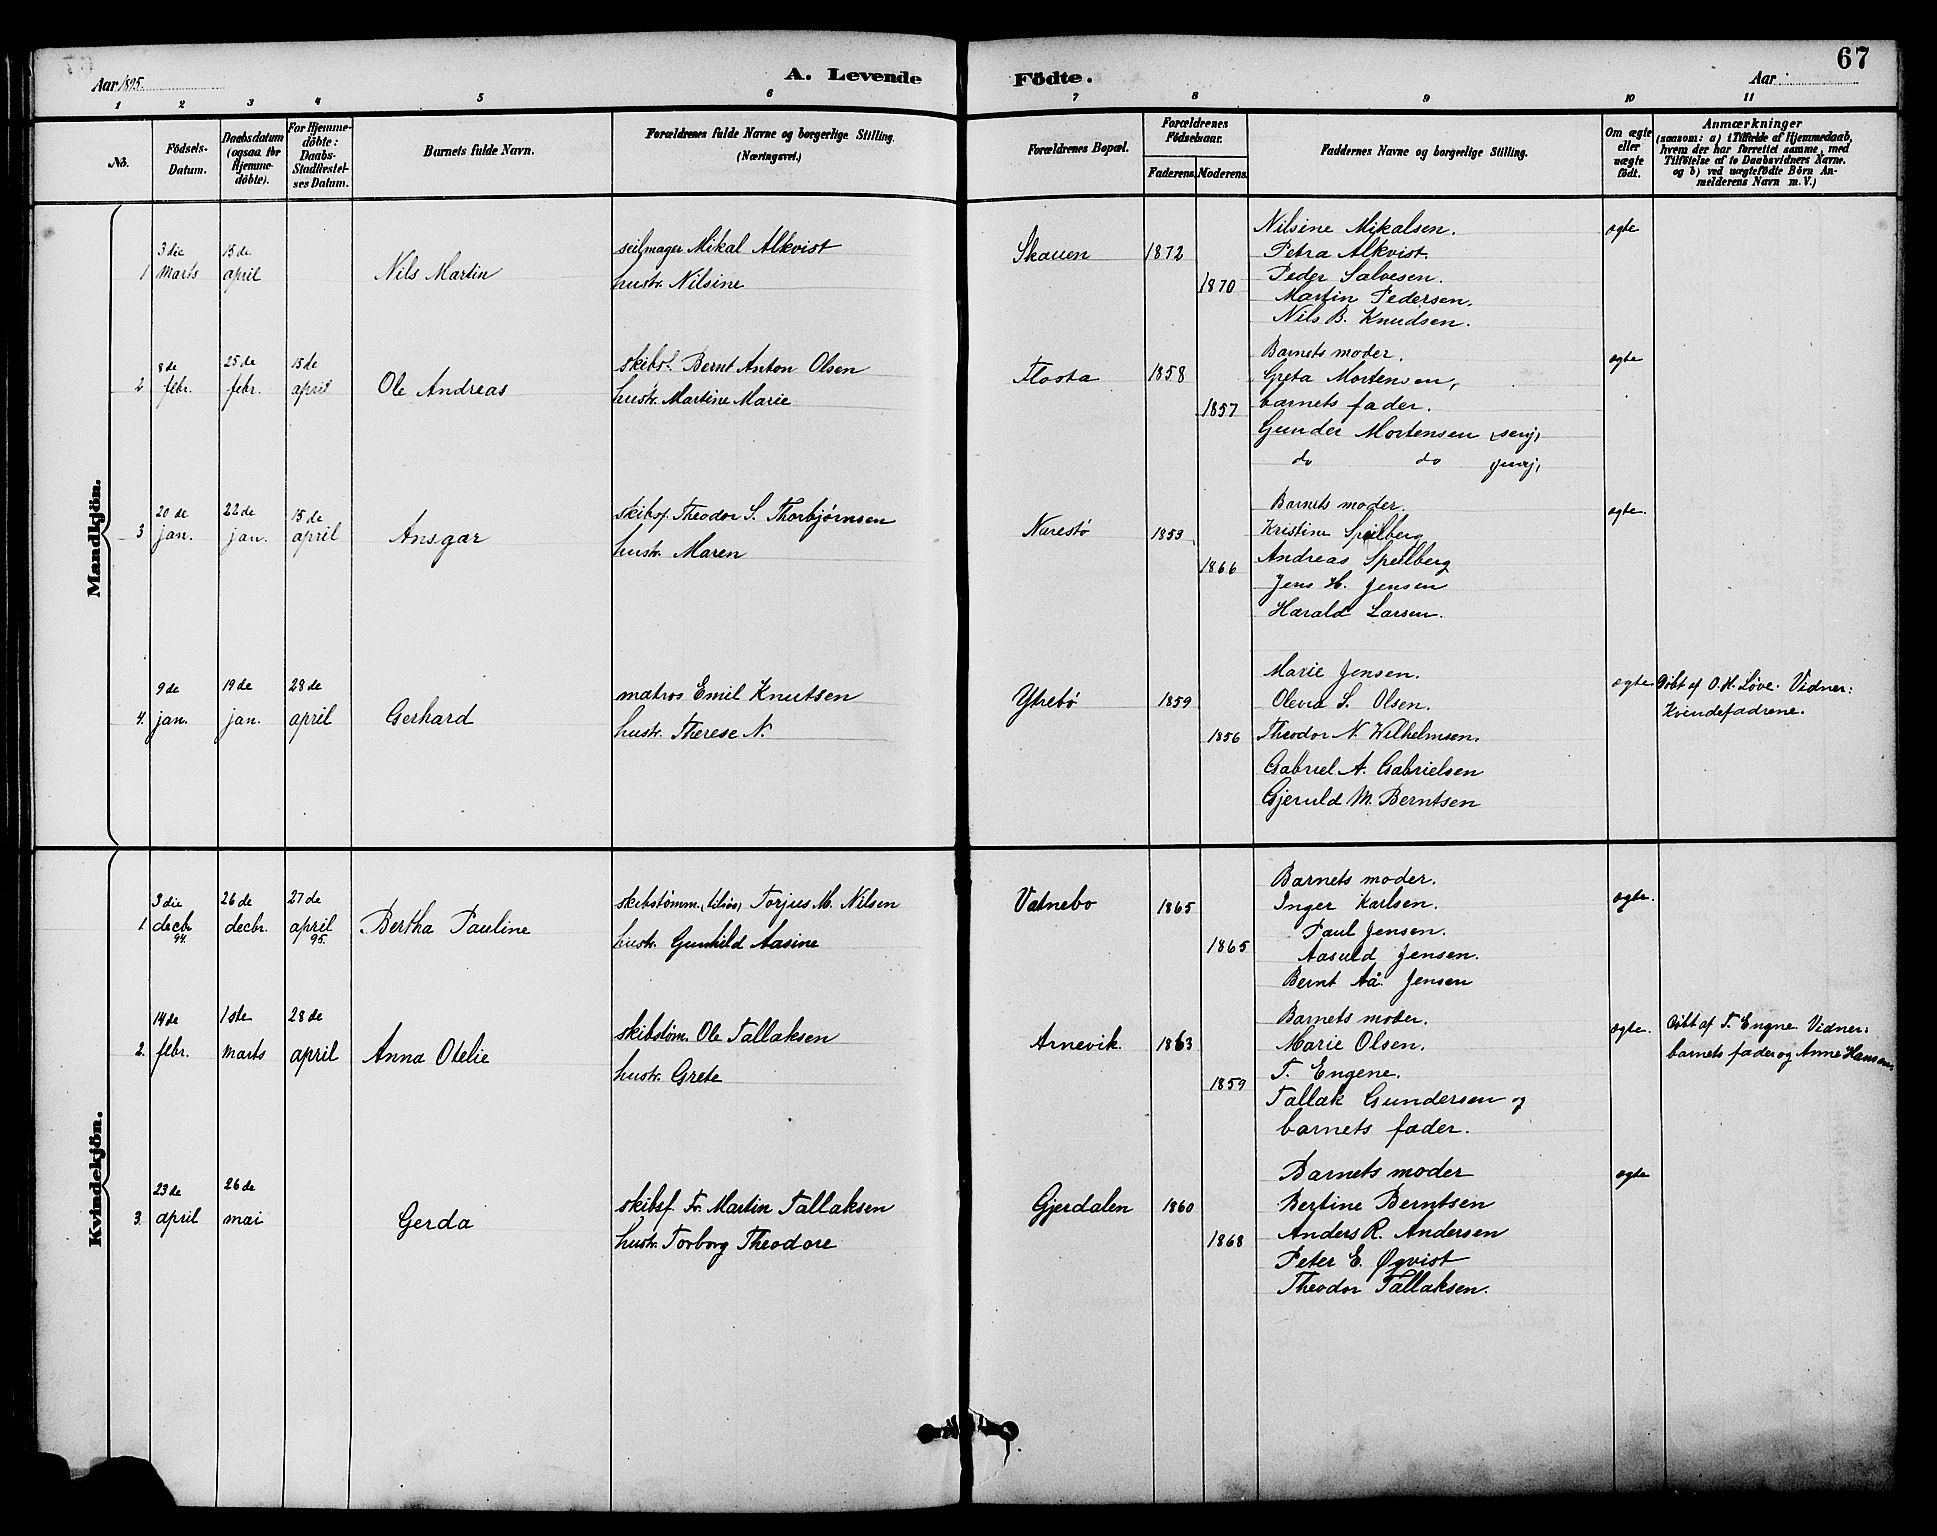 67
Aar 1895.
A. Levende Födte.
Aar
1 2 3 4 5 6 7 8 9 10 11
No.
Födsels-Datum.
Daabsdatum (ogsaa for Hjemme-döbte).
For Hjemme-döbte: Daabs-Stadfæstel-ses Datum.
Barnets fulde Navn.
Forældrenes fulde Navne og borgerlige Stilling. (Næringsvei.)
Forældrenes Bopæl.
Forældrenes Födselsaar.
Faderens. Moderens.
Faddernes Navne og borgerlige Stilling.
Om ægte eller uægte födt.
Anmærkninger
(saasom: a) i Tilfælde af Hjemmedaab,
hvem der har forrettet samme, med
Tilföielse af to Daabsvidners Navne.
og b) ved uægtefödte Börn An-
melderens Navn m. V.)
Mandkjön.
1 3die Marts 15de april Nils Martin
seilmager Mikal Alkvist
hustr. Nilsine
Skauen 1872 1870
Nilsine Mikalsen.
Petra Alkvist.
Peder Salvesen.
Martin Pedersen.
Nils B. Knudsen.
ægte
2 8de febr. 25de febr. 15de april Ole Andreas
skibsf. Bernt Anton Olsen
hustr. Martine Marie
Flosta 1858 1857
Barnets moder.
Greta Mortensen,
barnets fader.
Gunder Mortensen senj,
do do junj,
ægte
3 20de jan. 22de jan. 15de april Ansgar
skibsf. Theodor S. Thorbjørnsen
hustr. Maren
Narestø 1859 1866
Barnets moder.
Kristine Speilberg
Andreas Speilberg
Jens H. Jensen
Harald Larsen.
ægte.
4. 9de jan. 19de jan. 28de april Gerhard
matros Emil Knutsen
hustr. Therese N.
Ytrebø 1859 1856
Marie Jensen.
Olevia S. Olsen.
Theodor N. Wilhelmsen.
Gabriel A. Gabrielsen
Gjeruld M. Berntsen
ægte
Døbt af O. H. Løve. Vidner:
Kvindefadrene.
Kvindekjön.
1 3die decbr 94. 26de decbr. 27de april 95. Bertha Pauline
skibstømm. Torjus M. Nilsen
hustr. Gunhild Aasine
Vatnebo 1865 1865
Barnets moder.
Inger Karlsen.
Paul Jensen.
Aasuld Jensen.
Bernt Aå. Jensen
ægte.
2. 14de febr. 1ste Marts 28de april Anna Otelie
skibstøm. Ole Tallaksen
hustr. Grete
Arnevik 1863 1859
Barnets moder.
Marie Olsen.
T. Engene.
Tallak Gundersen og
barnets fader.
ægte.
Døbt af T. Engne. Vidner:
barnets fader og Anne Hansen
3. 23de april 26de mai Gerda
skibsf. Fr. Martin Tallaksen
hustr. Torborg Theodore
Gjerdalen 1860 1868
Barnets moder
Bertine Berntsen
Anders R. Andersen
Peter E. Øqvist
Theodor Tallaksen.
ægte